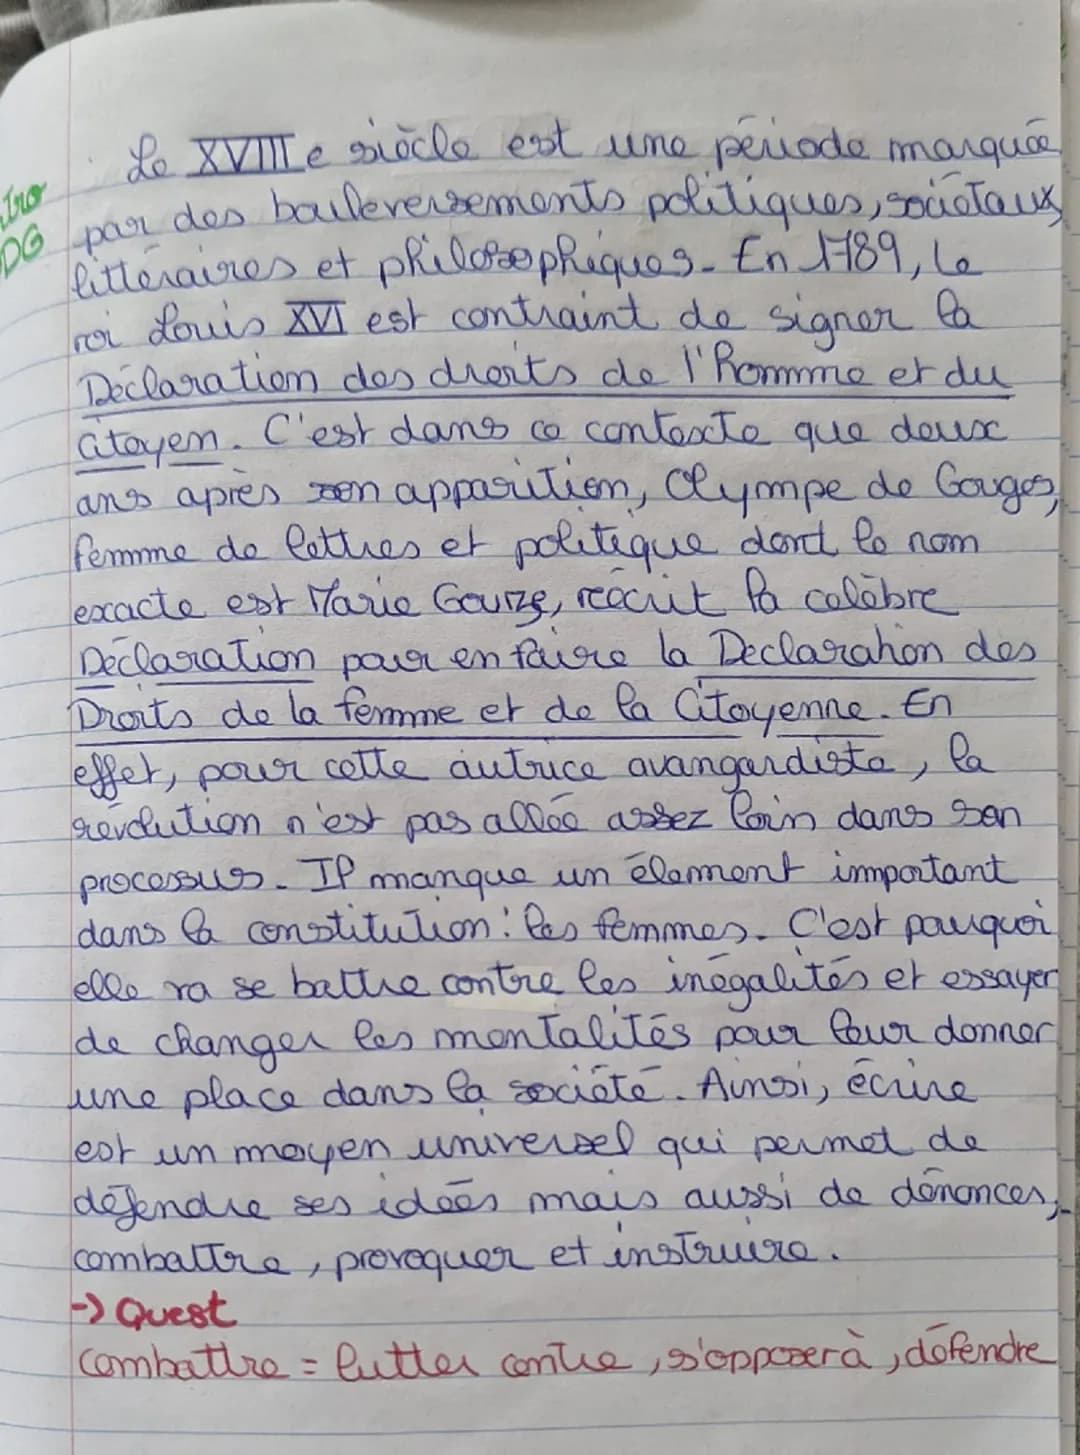 Le XVIIIe siècle est une période marquée
tro
DG
par des bouleversements politiques, sociétaux,
littéraires et philosophiques. En 1789, le
roi Louis XVI est contraint de signer la
Déclaration des droits de l'homme et du
Citoyen. C'est dans ce contexte que deux
ans après son apparition, Olympe de Gouges,
femme de lettres et politique dont le nom
exacte est Marie Gouze, réécrit la célèbre
Déclaration pour en faire la Declaration des
Droits de la femme et de la Citoyenne. En
effet, pour cette autrice avangardiste, la
révolution n'est pas allée assez loin dans son
processus. Il manque un élement important
dans la constitution : les femmes. C'est pourquoi
elle va se battre contre les inégalités et essayer
de changer les mentalités pour leur donner
une place dans la société. Ainsi, écrire
est un moyen universel qui permet de
défendre ses idées mais aussi de dénoncer,
combattre, provoquer et instruire.
-> Quest
Combattre = lutter contre, s'opposer à, défendre